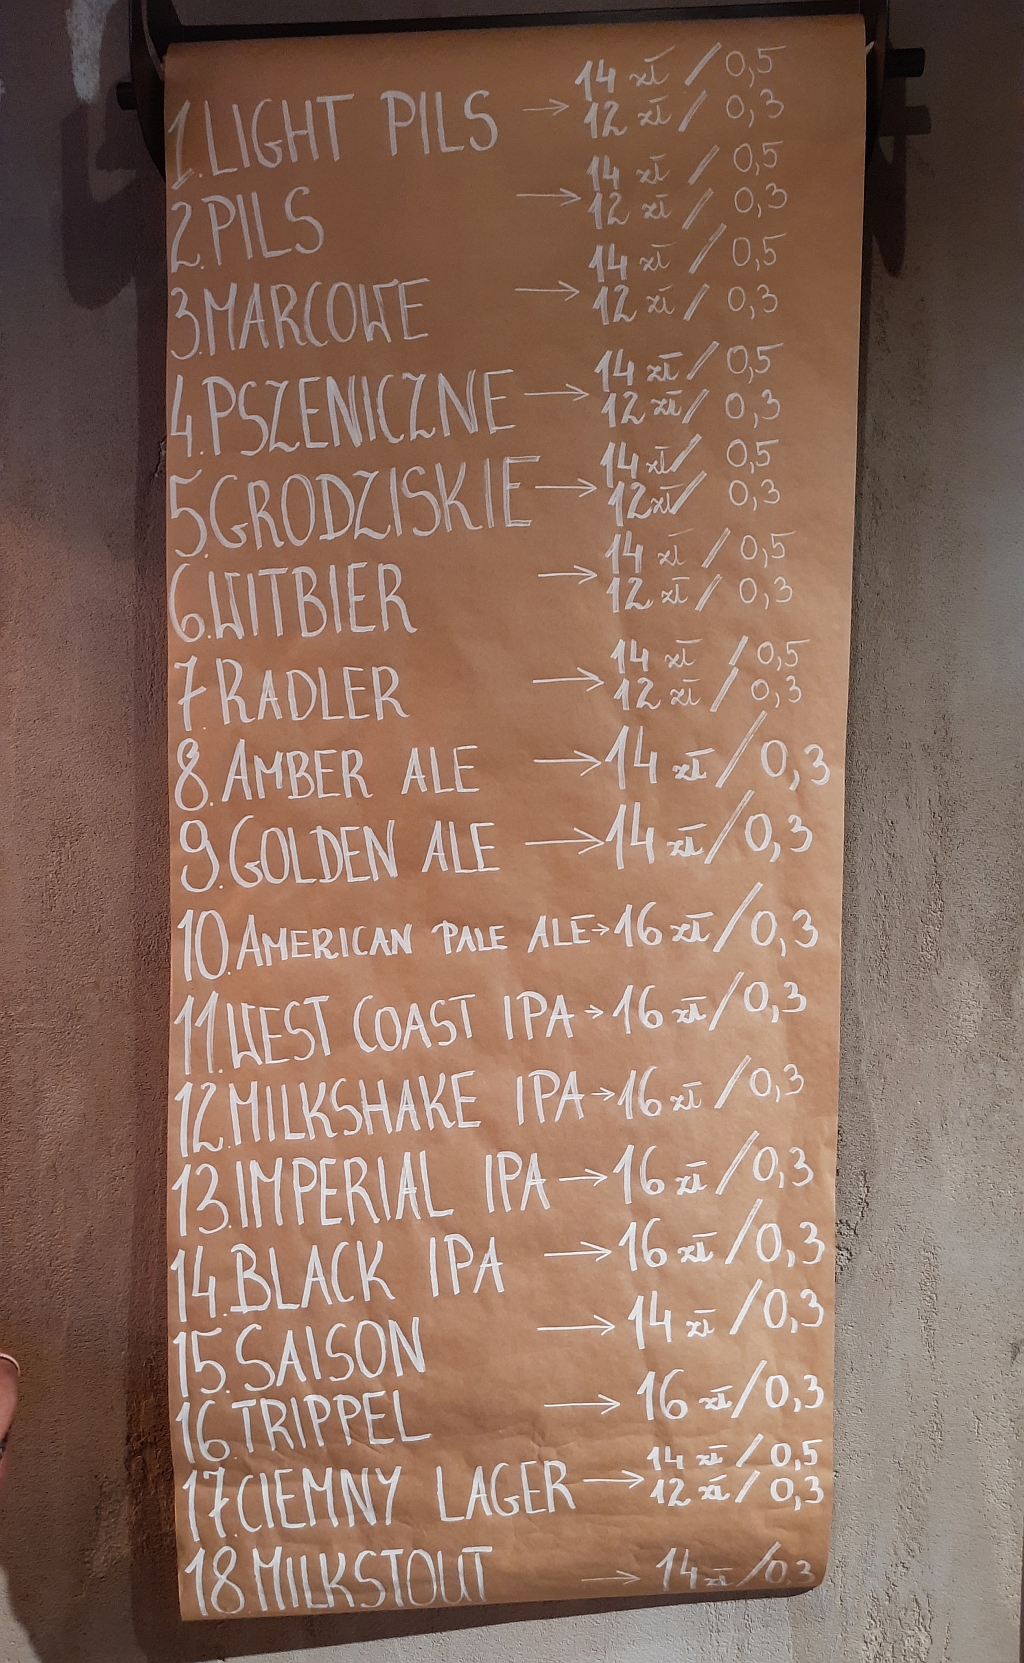 1. LIGHT PILS → 14 zł / 0,5
12 zł / 0,3
2. PILS → 14 zł / 0,5
12 zł / 0,3
3. MARCOWE → 14 zł / 0,5
12 zł / 0,3
4. PSZENICZNE → 14 zł / 0,5
12 zł / 0,3
5. GRODZISKIE → 14 zł / 0,5
12 zł / 0,3
6. WITBIER → 14 zł / 0,5
12 zł / 0,3
7. RADLER → 14 zł / 0,5
12 zł / 0,3
8. AMBER ALE → 14 zł / 0,3
9. GOLDEN ALE → 14 zł / 0,3
10. AMERICAN PALE ALE → 16 zł / 0,3
11. WEST COAST IPA → 16 zł / 0,3
12. MILKSHAKE IPA → 16 zł / 0,3
13. IMPERIAL IPA → 16 zł / 0,3
14. BLACK IPA → 16 zł / 0,3
15. SAISON → 14 zł / 0,3
16. TRIPPEL → 16 zł / 0,3
17. CIEMNY LAGER → 14 zł / 0,5
12 zł / 0,3
18 MILKSTOUT → 14 zł / 0,3